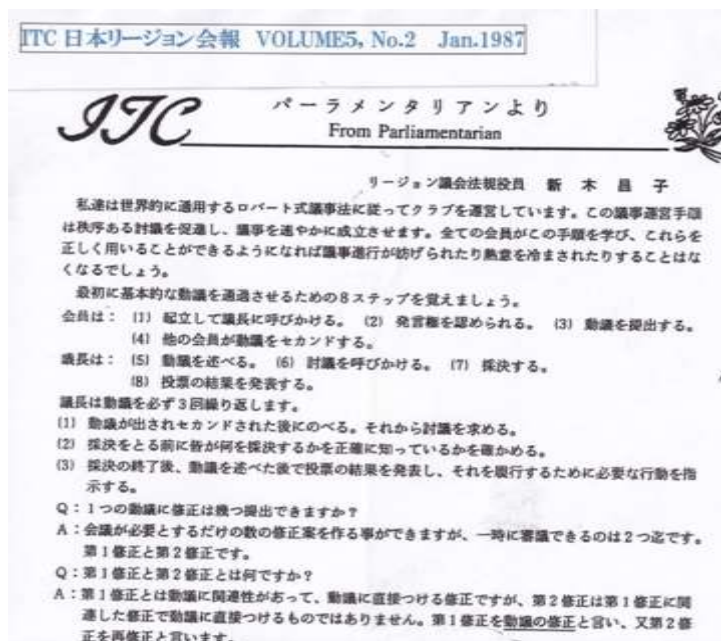 ITC 日本リージョン会報 VOLUME5, No.2 Jan.1987
ITC
パーラメンタリアンより
From Parliamentarian
リージョン議会法規役員 新木昌子
私達は世界的に通用するロバート式議事法に従ってクラブを運営しています。この議事運営手順
は秩序ある討議を促進し、議事を速やかに成立させます。全ての会員がこの手順を学び、これらを
正しく用いることができるようになれば議事進行が妨げられたり熱意を冷まされたりすることはな
くなるでしょう。
最初に基本的な動議を通過させるための8ステップを覚えましょう。
会員は: (1) 起立して議長に呼びかける。 (2) 発言権を認められる。 (3) 動議を提出する。
(4) 他の会員が動議をセカンドする。
議長は: (5) 動議を述べる。 (6) 討議を呼びかける。 (7) 採決する。
(8) 投票の結果を発表する。
議長は動議を必ず3回繰り返します。
(1) 動議が出されセカンドされた後にのべる。それから討議を求める。
(2) 採決をとる前に皆が何を採決するかを正確に知っているかを確かめる。
(3) 採決の終了後、動議を述べた後で投票の結果を発表し、それを履行するために必要な行動を指
示する。
Q:1つの動議に修正は幾つ提出できますか?
A:会議が必要とするだけの数の修正案を作る事ができますが、一時に審議できるのは2つ迄です。
第1修正と第2修正です。
Q:第1修正と第2修正とは何ですか?
A:第1修正とは動議に関連性があって、動議に直接つける修正ですが、第2修正は第1修正に関
連した修正で動議に直接つけるものではありません。第1修正を動議の修正と言い、又第2修
正を再修正と言います。